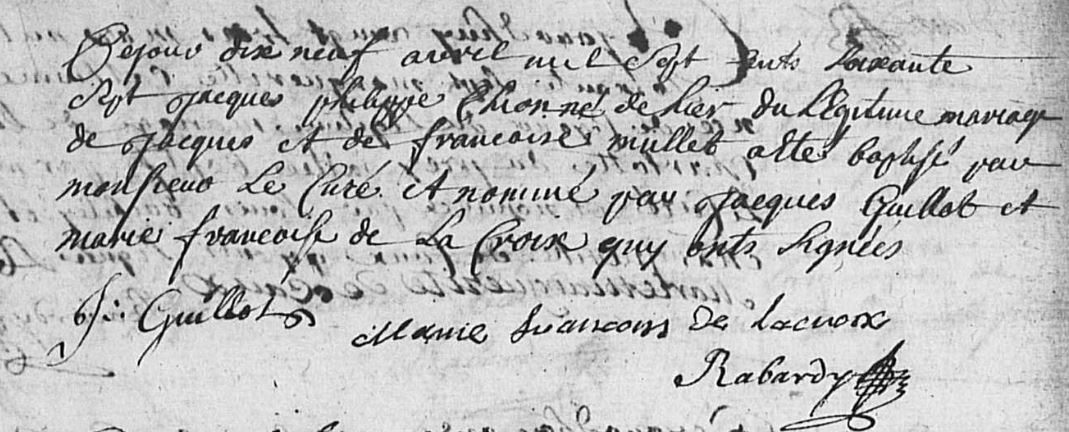 Cejour dix neuf avril mil sept cents soixante
sept jacques philippe né de hier du légitime mariage
de jacques et de francoise mullet a été baptisé par
monsieur le curé et nommé par jacques Guillot et
marie francoise de la Croix quy onts signées
j: Guillot
Marie francoise de lacroix
Rabardy